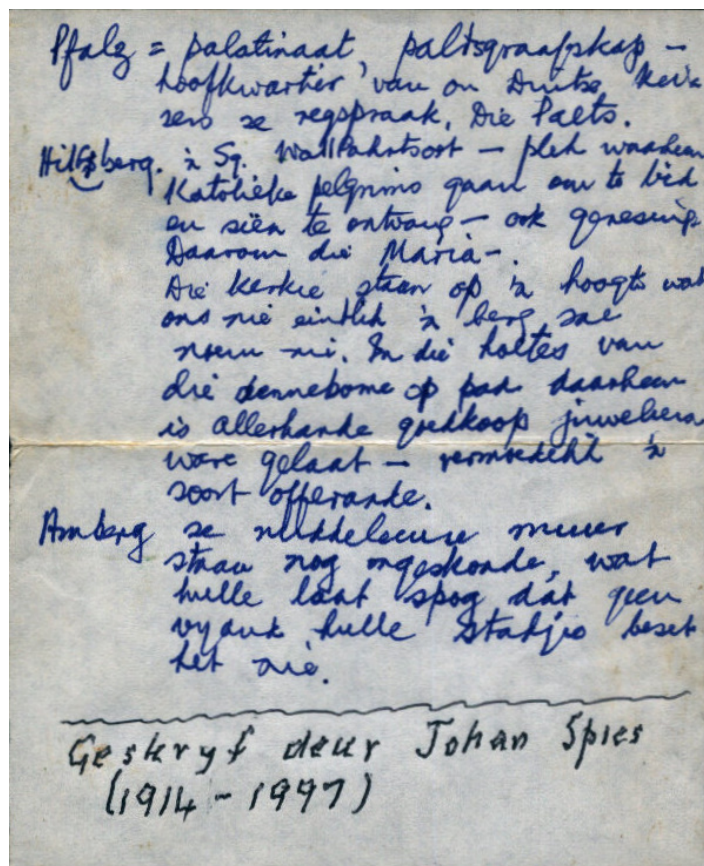 Pfalz = palatinaat, paltsgraafskap –
hoofkwartier van ou Duitse kei
sers se regspraak. Die Palts.
Hiltzberg. 'n Sg. Wallfahrtsort – plek waarheen
Katolieke pelgrims gaan om te bid
en siën te ontvang – ook genesing
Daarom die Maria–.
Die kerkie staan op 'n hoogte wat
ons nie eintlik 'n berg sal
noem nie. In die holtes van
die dennebome op pad daarheen
is allerhande goedkoop juweliers
ware gelaat – vermoedelik 'n
soort offerande.
Amberg se middeleeuse muur
staan nog ongeskonde, wat
hulle laat spog dát geen
vyand hulle stadjie beset
het nie.
Geskryf deur Johan Spies
(1914 – 1997)